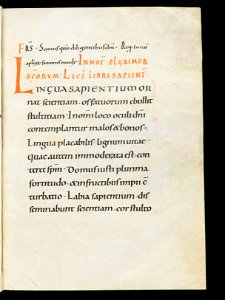 PS. Domus ipsa diligentibus
IN NAT PLURIMOR
SCORUM LECT LIBRI SAPIENT
LINGUA SAPIENTIUM OR
nat scientiam. os fatuorum ebullit
stultitiam In omni loco oculi dni
contemplantur malos & bonos.
Lingua placabilis lignum uitae
quae autem immoderata est. con
teret spm. Domus iusti plurima
fortitudo. & in fructibus impii c
turbatio. Labia sapientium dis
seminabunt scientiam. cor stulto